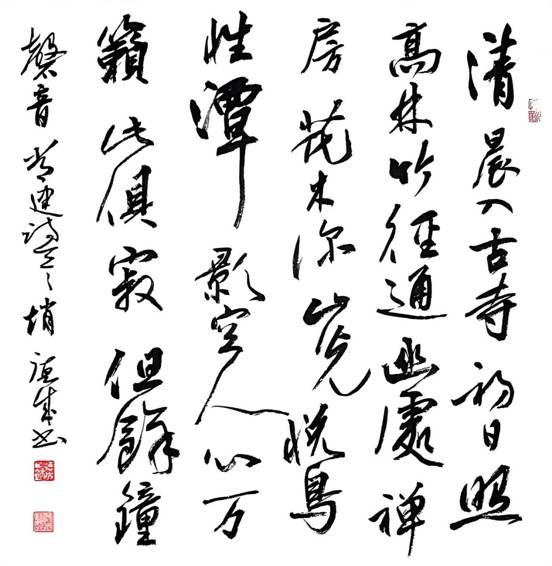 清晨入古寺初日照
高林竹径通幽處禅
房花木深山光悦鳥
性潭影空人心万
籟此俱寂但餘鐘
磬音常建诗书